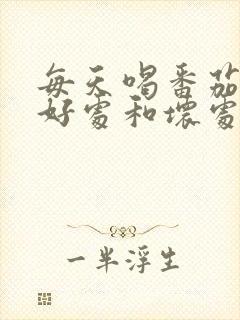 每天喝番茄
好處和壞處
一半浮生